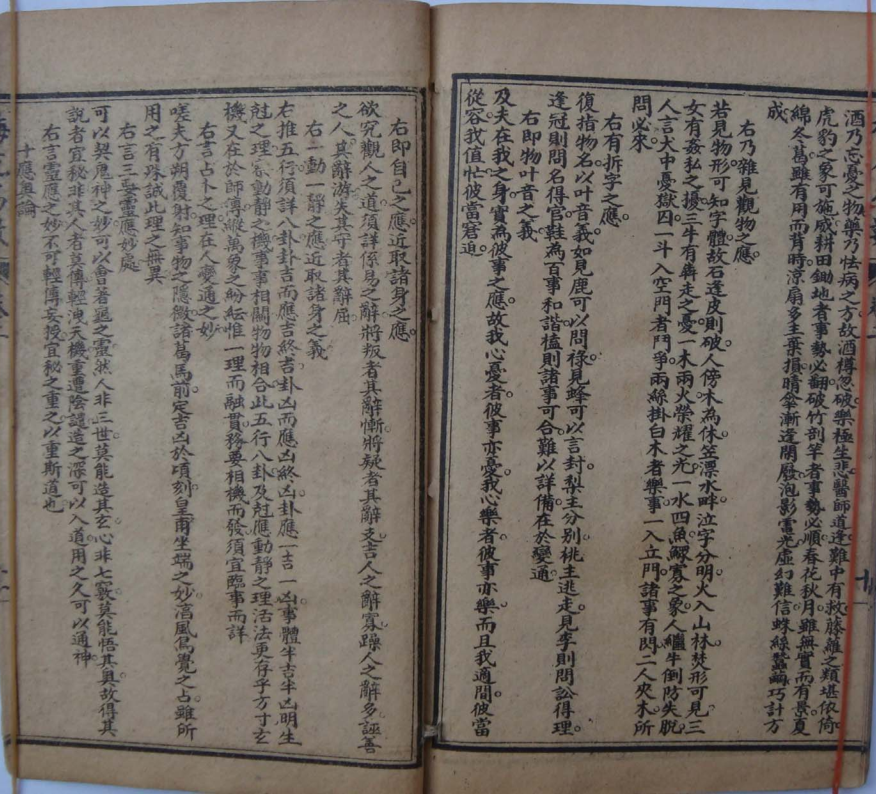 酒乃忘憂之物藥乃怯病之方故酒樽忽破樂極生悲醫師道逢難中有救藤籮之類堪依倚
虎豹之象可施威耕田鋤地者事勢必翻破竹剖竿者事勢必順春花秋月雖無實而有景夏
綿冬葛雖有用而背時涼扇多主棄損晴傘漸逢閑廢泡影電光虛幻難信蛛絲蠶繭巧計方
成
右乃雜見觀物之應
若見物形可知字體故石逢皮則破人傍木為休笠漂水畔泣字分明火入山林焚形可見三
女有姦私之擾三牛有犇走之憂一木兩火榮耀之光一水四魚鰥寡之象人繼牛倒防失脫
人言犬中憂獄囚一斗入空門者鬥爭兩絲掛白木者樂事一入立門諸事有閃二人夾木所
問必來
右有拆字之應
復指物名以叶音義如見鹿可以問祿見蜂可以言封梨主分別桃主逃走見李則問訟得理
逢冠則問名得官鞋為百事和諧榼則諸事可合難以詳備在於變通
右即物叶音之義
及夫在我之身實為彼事之應故我心憂者彼事亦憂我心樂者彼事亦樂而且我適間彼當
從容我值忙彼當窘迫
右即自己之應近取諸身之應
欲究觀人之道須詳係易之辭將叛者其辭慚將疑者其辭支吉人之辭寡躁人之辭多誣善
之人其辭游失其守者其辭屈
右一動一靜之應近取諸身之義
右推五行須詳八卦卦吉而應吉終吉卦凶而應凶終凶卦應一吉一凶事體半吉半凶明生
尅之理察動靜之機事事相關物物相合此五行八卦及尅應動靜之理活法更存乎方寸玄
機又在於師傳縱萬象之紛紜惟一理而融貫務要相機而發須宜臨事而詳
右言占卜之理在人變通之妙
嗟夫方朔覆射知事物之隱微諸葛馬前定吉凶於頃刻皇甫坐端之妙高風鳥覺之占雖所
用之有殊誠此理之無異
右言三要靈應妙處
可以契鬼神之妙可以會蓍龜之靈然人非三世莫能造其玄心非七竅莫能悟其奧故得其
說者宜秘非其人者莫傳輕洩天機重遭陰譴造之深可以入道用之久可以通神
右言靈應之妙不可輕傳妄授宜秘之重之以重斯道也
十應奧論